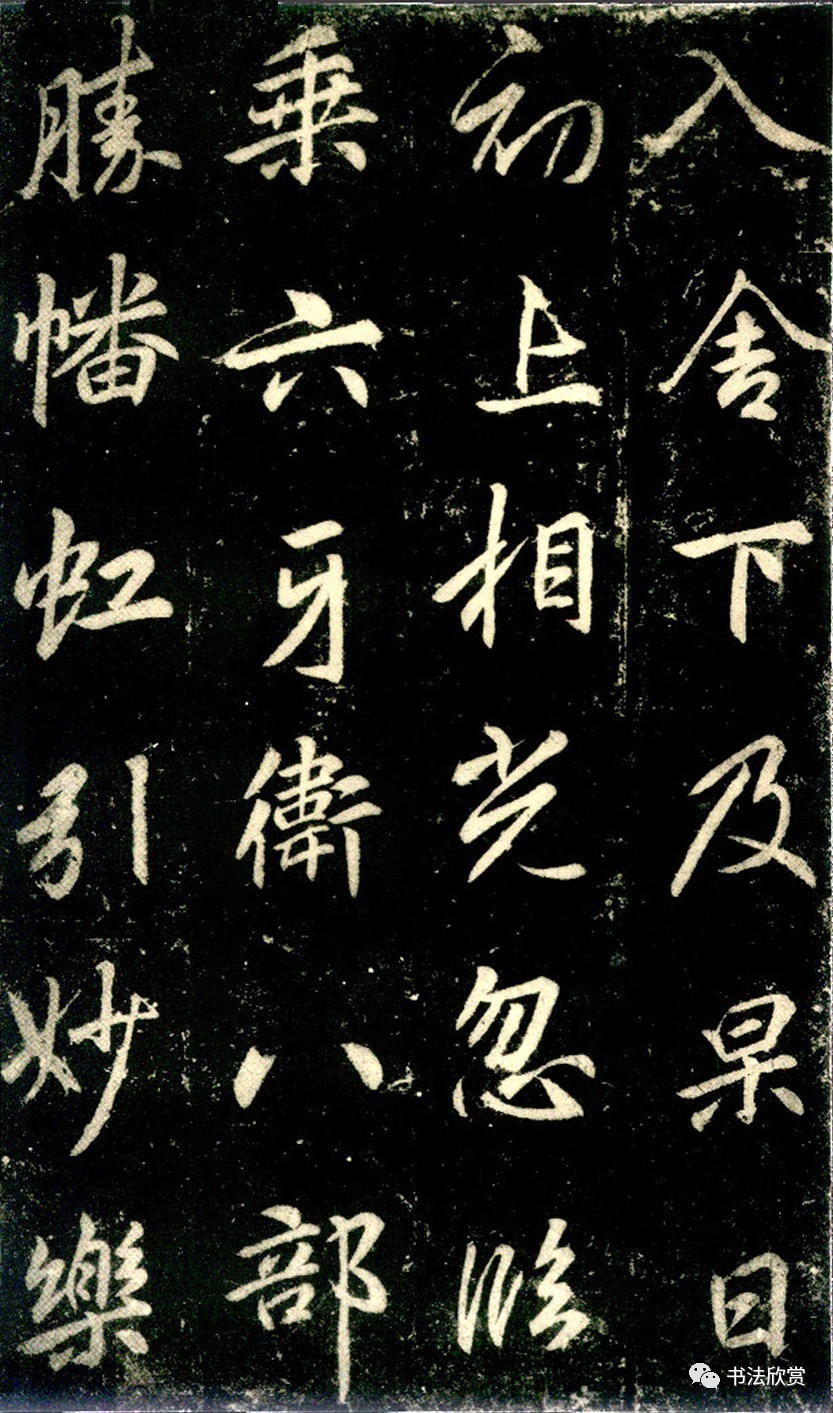 入舍下及杲日
初上相光忽臨
乗六牙衛八部
勝幡虹引妙樂
书法欣赏